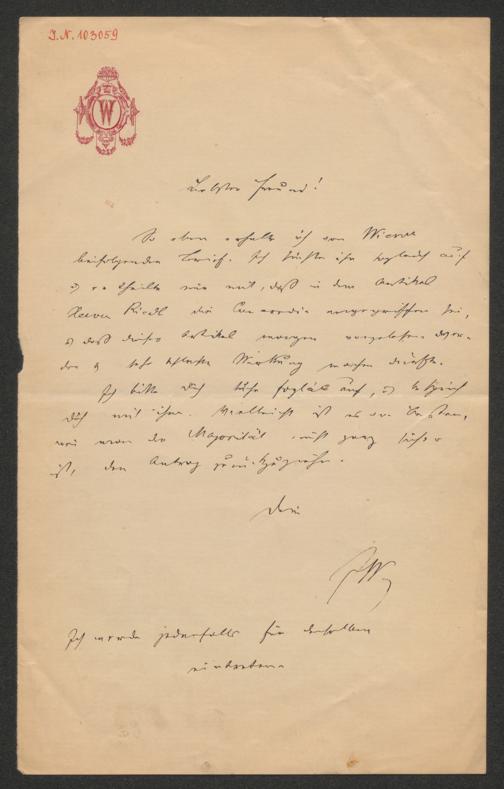 J.N. 103059
W
Liebster Freund!
So eben erhalte ich von Wiener
beifolgenden Brief. Ich suchte ihn sogleich auf
u er theilte mir mit, daß in dem Artikel
die Concordia angegriffen sei,
u daß dieser Artikel morgen vorgelesen wer-
den u sehr schlechte Wirkung machen dürfte.
Ich bitte Dich suche sogleich auf, u besprich
Dich mit ihm. Vielleicht ist es am besten,
wenn man der Majorität nicht ganz sicher
ist, den Antrag zurückzuziehen.
Dein
W
Ich werde jedenfalls für denselben
eintreten.